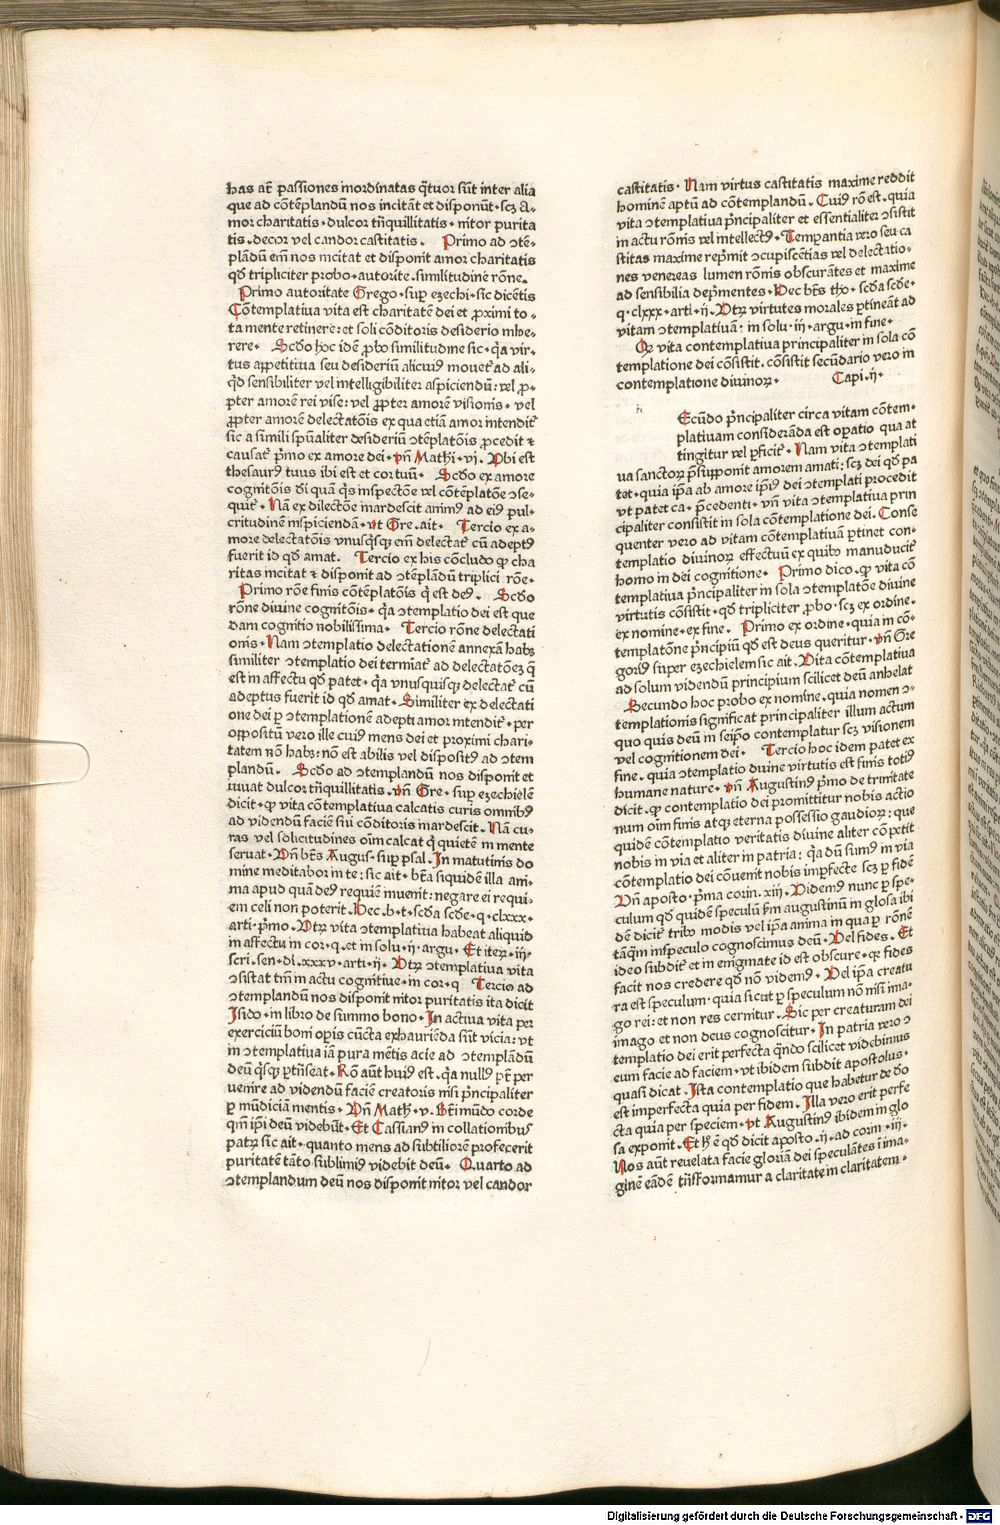 has at̄ passiones inordinatas q̄tuor sūt inter alia
que ad cōtēplandū nos incitāt et disponūt. scꝫ a-
mor charitatis. dulcor trāquillitatis. nitor purita
tis. decor vel candor castitatis. Primo ad ↄtē-
plādū em̄ nos incitat et disponit amor charitatis
qd̄ tripliciter probo. autorite. similitudine rōne.
Primo autoritate Grego. suꝑ ezechi. sic dicētis
Cōtemplatiua vita est charitatē dei et ꝓximi to-
ta mente retinere: et soli cōditoris desiderio inhe-
rere. Scd̄o hoc idē ꝓbo similitudine sic. q̄a vir-
tus appetitiua seu desideriū alicuiꝰ mouet᷑ ad ali-
q̄d sensibiliter vel intelligibiliter aspiciendū: vel ꝓ-
pter amorē rei vise: vel ꝓpter amorē visionis. vel
ꝓpter amorē delectatōis ex qua etiā amor intendit᷑
sic a simili spūaliter desideriū ↄtēplatōis ꝓcedit ⁊
causat᷑ pͥmo ex amore dei. vn̄ Mathi. vj. Vbi est
thesaurꝰ tuus ibi est et cor tuū. Scd̄o ex amore
cognitōis di quā q̄s inspectōe vel cōtēplatōe ↄse-
quit᷑. Nā ex dilectōe inardescit animꝰ ad eiꝰ pul-
critudinē inspiciendā. vt Gre. ait. Tercio ex a-
more delectatōis vnusq̄sqꝫ em̄ delectat᷑ cū adeptꝰ
fuerit id qd̄ amat. Tercio ex his cōcludo ꝙ cha
ritas incitat ⁊ disponit ad ↄtēplādū triplici rōe.
Primo rōe finis cōtēplatōis q̄ est deꝰ. Scd̄o
rōne diuine cognitōis. q̄a ↄtemplatio dei est que
dam cognitio nobilissima. Tercio rōne delectati
onis. Nam ↄtemplatio delectationē annexā habꝫ
similiter ↄtemplatio dei termiat᷑ ad delectatōeꝫ q̄
est in affectu qd̄ patet. q̄a vnusquisqꝫ delectat᷑ cū
adeptus fuerit id qd̄ amat. Similiter ex delectati
one dei ꝑ ↄtemplationē adepti amor intendit᷑. per
oppositū vero ille cuiꝰ mens dei et proximi chari-
tatem nō habꝫ: nō est abilis vel dispositꝰ ad ↄtem
plandū. Scd̄o ad ↄtemplandū nos disponit et
iuuat dulcor trāquillitatis. vn̄ Gre. suꝑ ezechielē
dicit. ꝙ vita cōtemplatiua calcatis curis omnibꝰ
ad videndū faciē sui cōditoris inardescit. Nā cu-
ras vel solicitudines oīm calcat q̄ quietē in mente
seruat. Vn̄ bt̄s Augus. suꝑ psal. In matutinis do
mine meditabor in te: sic ait. bt̄a siquidē illa ani-
ma apud quā deꝰ requiē inuenit: negare ei requi-
em celi non poterit. Hec. b. t. scd̄a scd̄e. q. clxxx.
arti. pͥmo. Vtꝝ vita ↄtemplatiua habeat aliquid
in affectu in cor. q. et in solu. ij. argu. Et iteꝝ. iij.
scri. sen. di. xxxv. arti. ij. Vtꝝ ↄtemplatiua vita
ↄsistat tm̄ in actu cognitiue. in cor. q Tercio ad
ↄtemplandū nos disponit nitor puritatis ita dicit
Isido. in libro de summo bono. In actiua vita per
exerciciū boni opis cūcta exhaurieda sūt vicia: vt
in ↄtemplatiua iā pura mētis acie ad ↄtemplādū
deū q̄sqꝫ ꝑtn̄seat. Rō aūt huiꝰ est. q̄a nullꝰ pt̄ per
uenire ad videndū faciē creatoris nisi pͥncipaliter
ꝑ mūdiciā mentis. Vn̄ Math. v. Bt̄i mūdo corde
qm̄ ip̄i deū videbūt. Et Cassianꝰ in collationibus
patꝝ sic ait. quanto mens ad subtiliorē profecerit
puritatē tāto sublimiꝰ videbit deū. Quarto ad
ↄtemplandum deū nos disponit nitor vel candor
castitatis. Nam virtus castitatis maxime reddit
hominē aptū ad cōtemplandū. Cuiꝰ rō est. quia
vita ↄtemplatiua pͥncipaliter et essentialiter ↄsistit
in actu rōnis vel intellectꝰ. Tempantia vero seu ca
stitas maxime rep̄mit ↄcupiscētias vel delectatio-
nes venereas lumen rōnis obscurātes et maxime
ad sensibilia dep̄mentes. Hec bt̄s tho. scd̄a scd̄e.
q. clxxx. arti. ij. Vtꝝ virtutes morales ꝑtineāt ad
vitam ↄtemplatiuā: in solu. iij. argu. in fine.
Qꝙ vita contemplatiua principaliter in sola cō
templatione dei cōsistit. cōsistit secūdario vero in
contemplatione diuinoꝝ. Capi. ij.
Ecūdo pͥncipaliter circa vitam cōtem-
platiuam considerāda est opatio qua at
tingitur vel ꝑficit᷑. Nam vita ↄtemplati
ua sanctoꝝ p̄supponit amorem amati: scꝫ dei qd̄ pa
tet. quia ip̄a ab amore ip̄iꝰ dei ↄtemplati procedit
vt patet ca. p̄cedenti. vn̄ vita ↄtemplatiua prin
cipaliter consistit in sola cōtemplatione dei. Conse
quenter vero ad vitam cōtemplatiuā ꝑtinet con-
templatio diuinoꝝ effectuū ex quibꝰ manuducit᷑
homo in dei cognitione. Primo dico. ꝙ vita cō
templatiua pͥncipaliter in sola ↄtemplatōe diuine
virtutis cōsistit. qd̄ tripliciter ꝓbo. scꝫ ex ordine.
ex nomine. ex fine. Primo ex ordine. quia in cō-
templatōne pͥncipiū qd̄ est deus queritur. vn̄ Gre
goriꝰ super ezechielem sic ait. Vita cōtemplatiua
ad solum videndū principium scilicet deū anhelat
Secundo hoc probo ex nomine. quia nomen ↄ-
templationis significat principaliter illum actum
quo quis deū in seip̄o contemplatur scꝫ visionem
vel cognitionem dei. Tercio hoc idem patet ex
fine. quia ↄtemplatio diuine virtutis est finis totiꝰ
humane nature. vn̄ Augustinꝰ pͥmo de trinitate
dicit. ꝙ contemplatio dei promittitur nobis actio
num oīm finis atqꝫ eterna possessio gaudioꝝ: que
quidē contemplatio veritatis diuine aliter cōpetit
nobis in via et aliter in patria: q̄a dū sumꝰ in via
cōtemplatio dei cōuenit nobis imꝑfecte scꝫ ꝑ fidē
Vn̄ aposto. pͥma corin. xiij. Videmꝰ nunc ꝑ spe-
culum qd̄ quidē speculū ẜm augustinū in glosa ibi
dē dicit᷑ tribꝰ modis vel ip̄a anima in qua ꝑ rōnē
tāq̄m in speculo cognoscimus deū. Vel fides. Et
ideo subdit᷑ et in enigmate id est obscure. qꝛ fides
facit nos credere qd̄ nō videmꝰ. Vel ip̄a creatu
ra est speculum. quia sicut ꝑ speculum nō nisi ima-
go rei: et non res cernitur. Sic per creaturam dei
imago et non deus cognoscitur. In patria vero ↄ
templatio dei erit perfecta qn̄do scilicet videbimus
eum facie ad faciem. vt ibidem subdit apostolus.
quasi dicat. Ista contemplatio que habetur de do
est imperfecta quia per fidem. Illa vero erit perfe
cta quia per speciem. vt Augustinꝰ ibidem in glo
sa exponit. Et h̄ ē qd̄ dicit aposto. ij. ad corin. iij.
Nos aūt reuelata facie gloriā dei speculātes ī ima-
ginē eādē trāsformamur a claritate in claritatem.
Digitalisierung gefördert durch die Deutsche Forschungsgemeinschaft - DFG